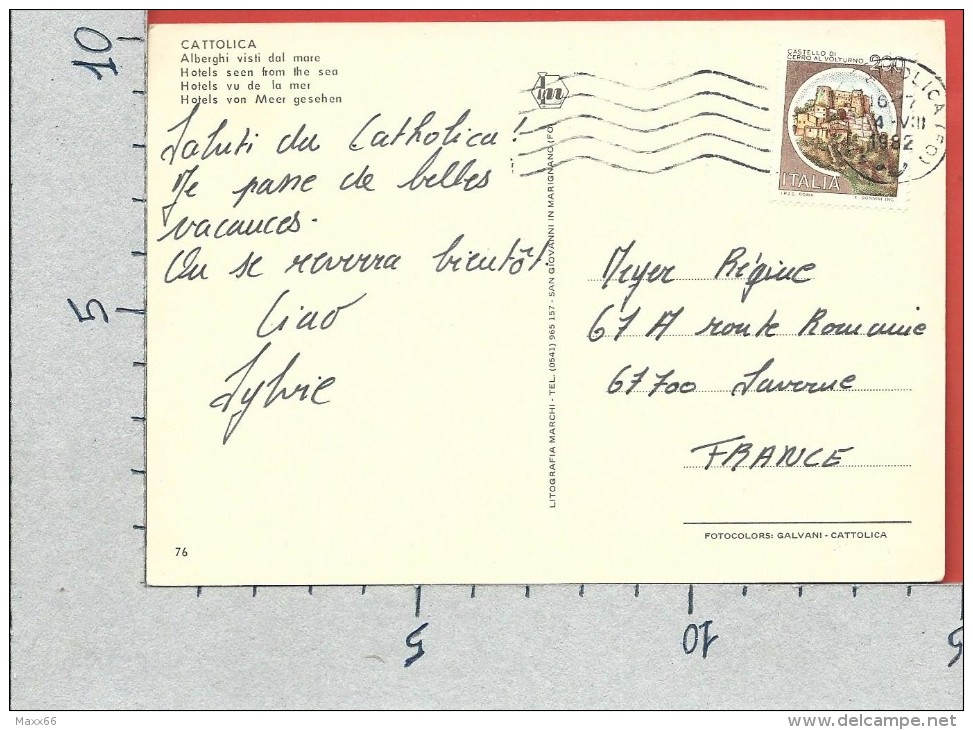 CATTOLICA
Alberghi visti dal mare
Hotels seen from the sea
Hotels vu de la mer
Hotels von Meer gesehen
Saluti da Catholica!
Je passe de belles
vacances.
On se reverra bientôt
Ciao
Sylvie
76
LITOGRAFIA MARCHI - TEL. (0541) 965 157 - SAN GIOVANNI IN MARIGNANO (FO)
CASTELLO DI
CERRO AL VOLTURNO
200
ITALIA
OLICA (FO)
16-17
4 VIII
1982
Meyer Régine
67 A route Romaine
67700 Saverne
FRANCE
FOTOCOLORS: GALVANI - CATTOLICA
10
5
5
10
5
Maxx66
delcampe.net